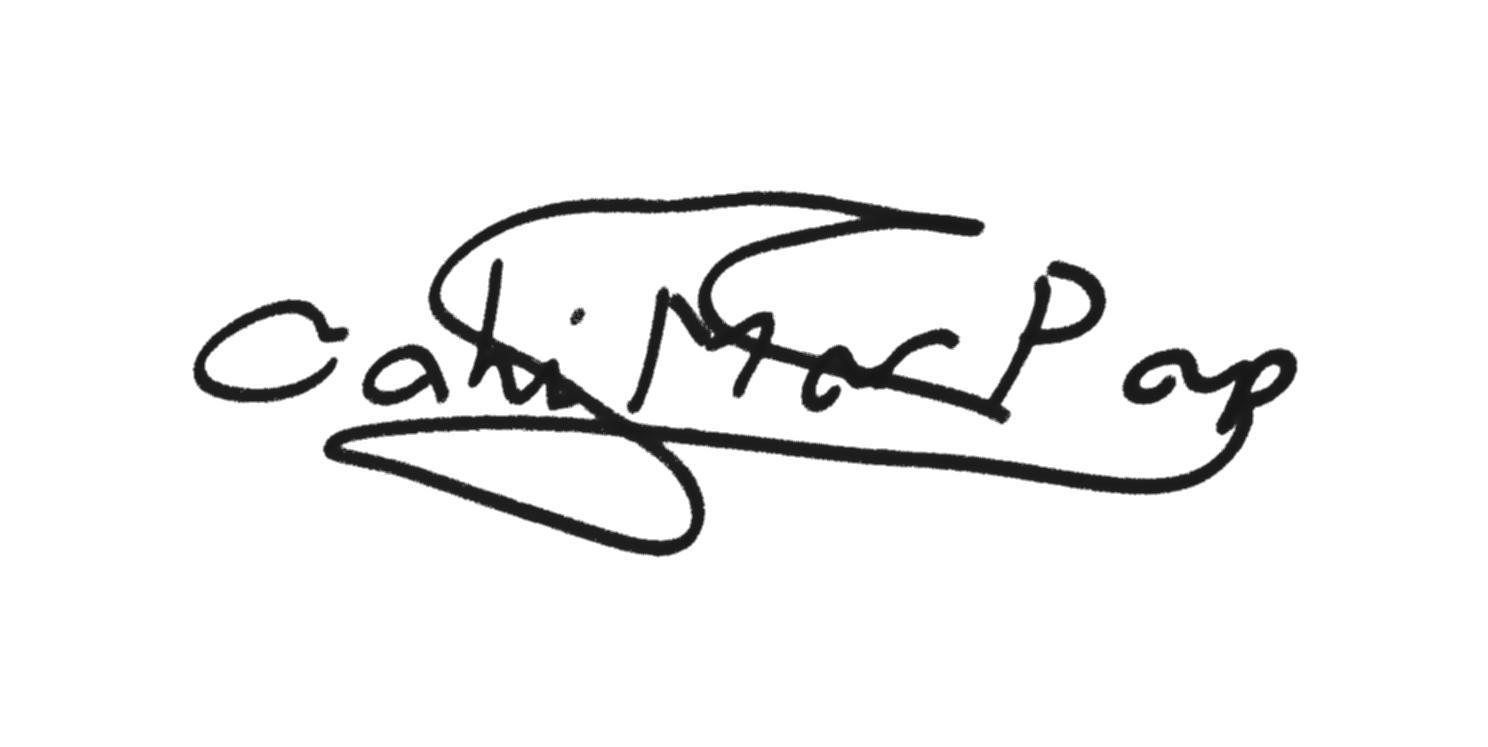 Cahi Mac Pap